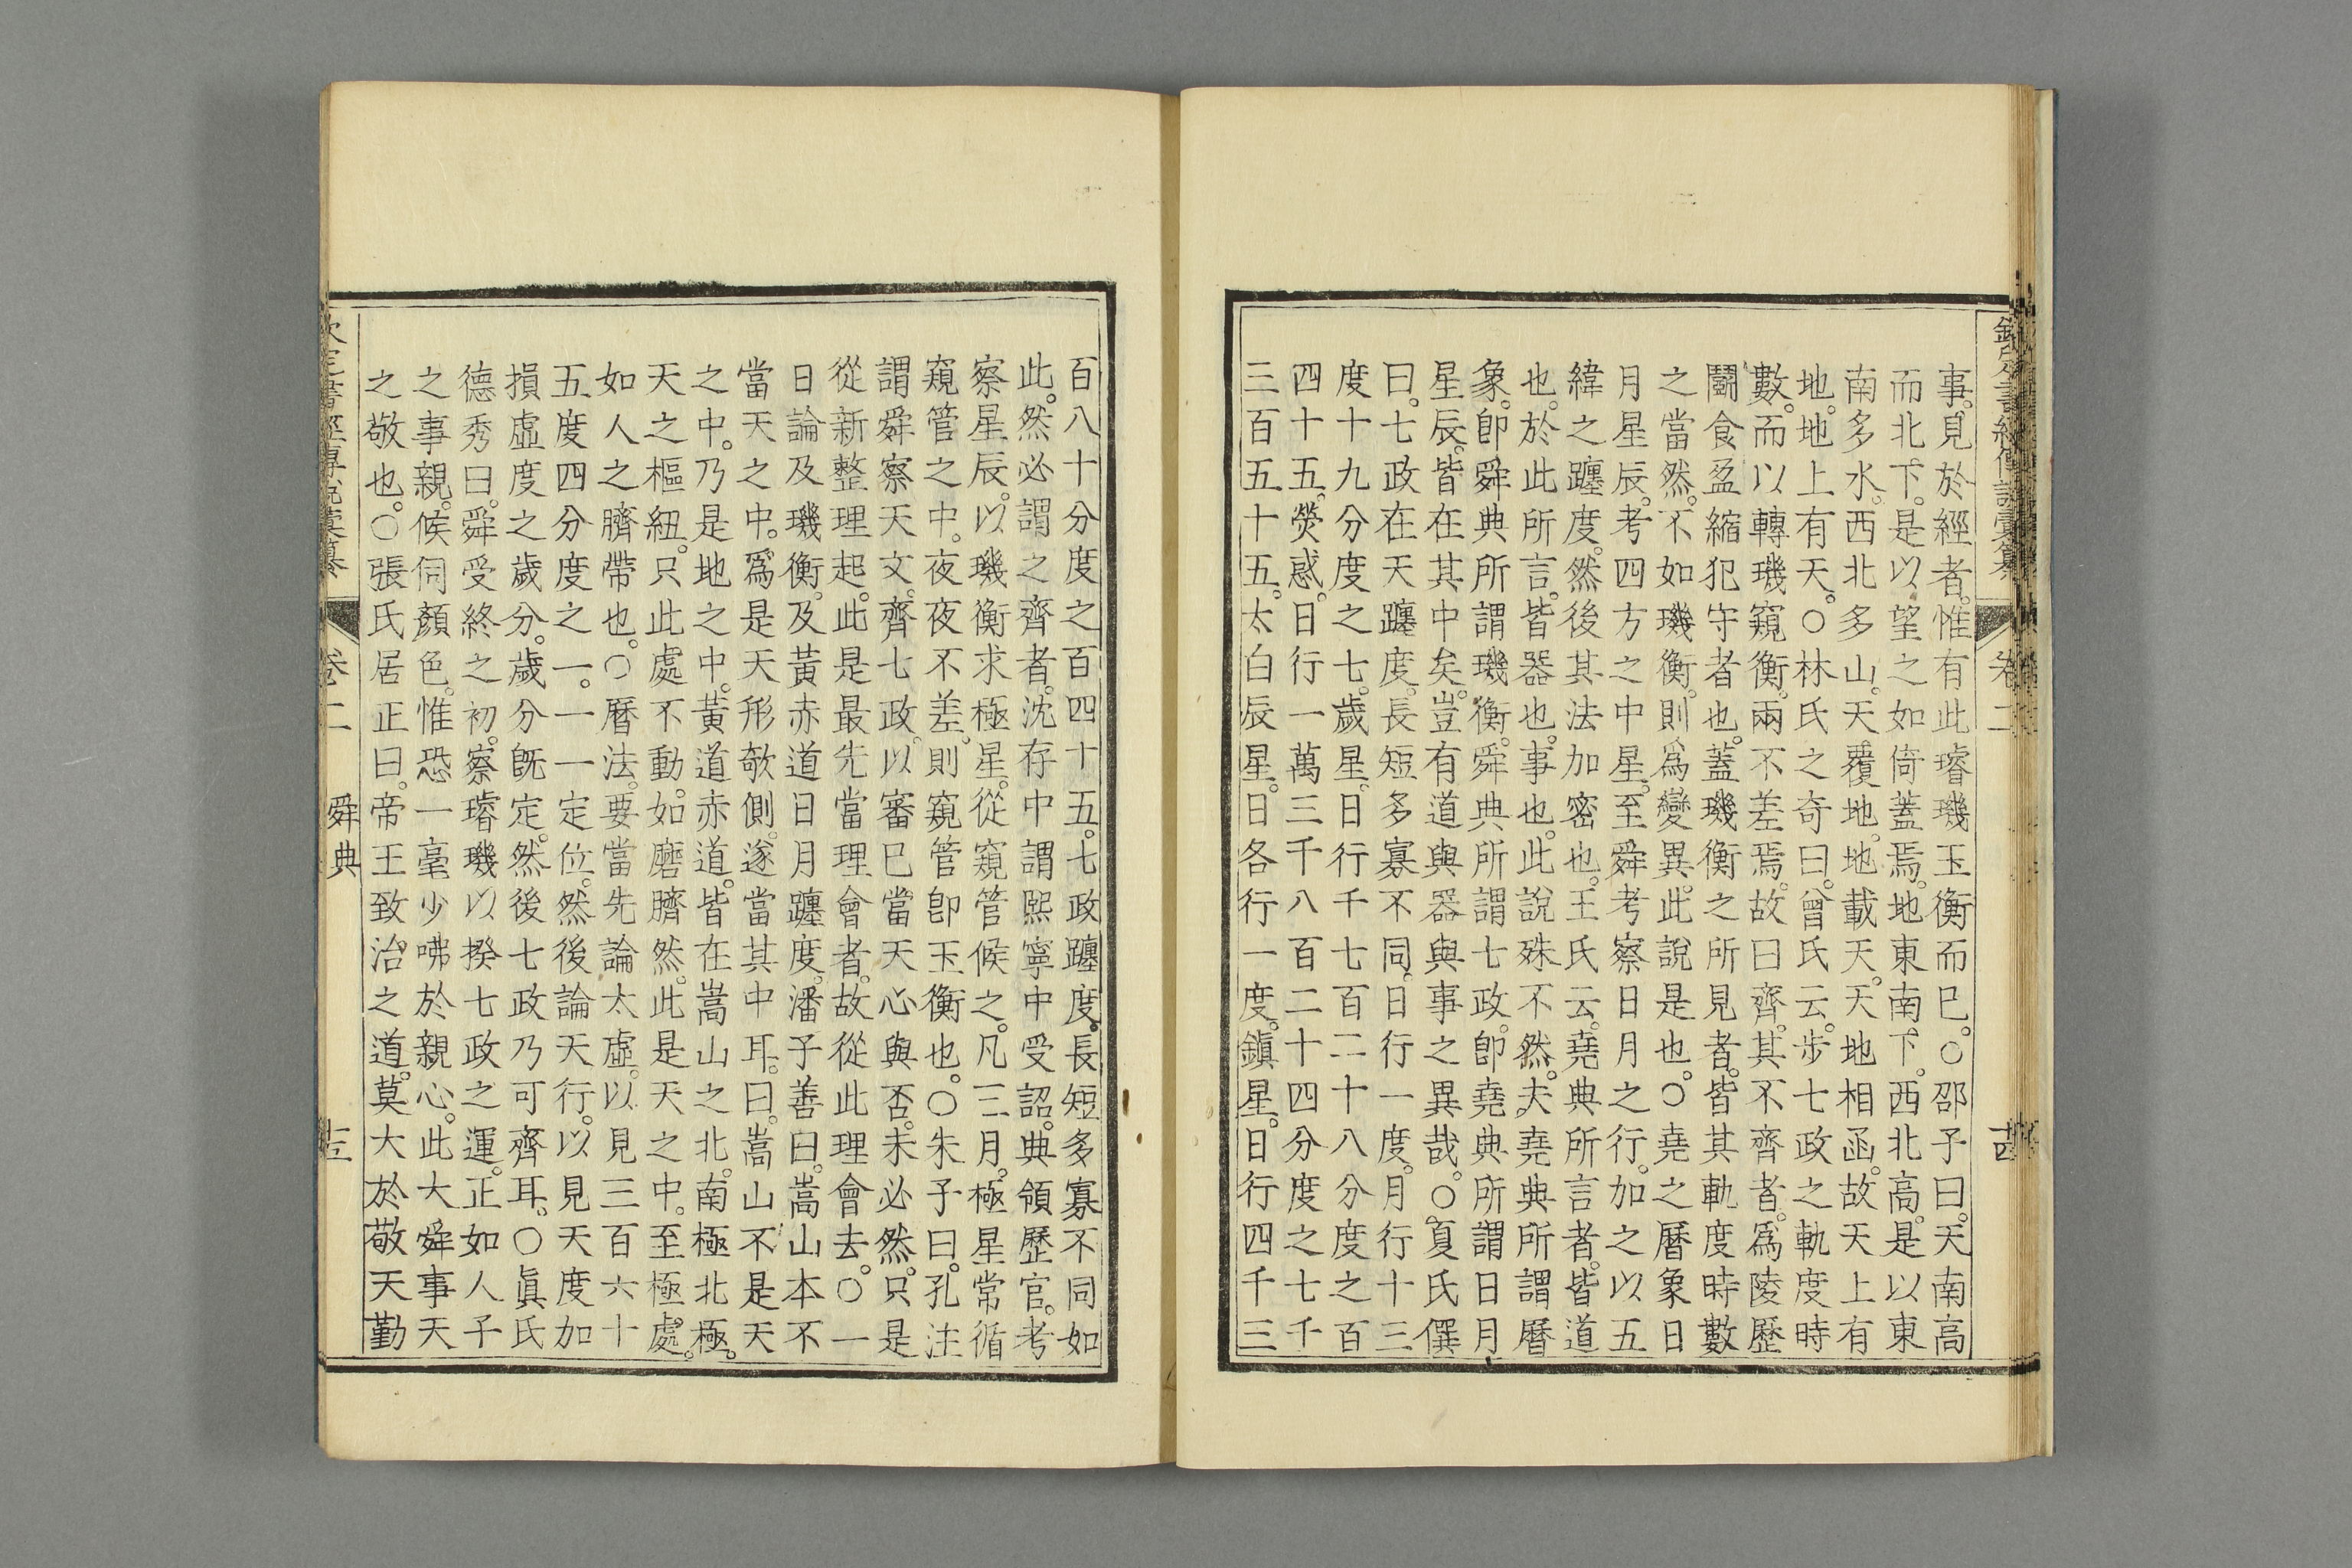 事見於經者惟有此璿璣玉衡而已○邵子曰天南高
而北下是以望之如倚蓋焉地東南下西北高是以東
南多水西北多山天覆地地載天天地相函故天上有
地地上有天○林氏之奇曰曾氏云步七政之軌度時
數而以轉璣窺衡兩不差焉故曰齊其不齊者爲陵歷
鬭食盈縮犯守者也蓋璣衡之所見者皆其軌度時數
之當然不如璣衡則爲變異此說是也○堯之曆象日
月星辰考四方之中星至舜考察日月之行加之以五
緯之躔度然後其法加密也王氏云堯典所言者皆道
也於此所言皆器也事也此說殊不然夫堯典所謂曆
象卽舜典所謂璣衡舜典所謂七政卽堯典所謂日月
星辰皆在其中矣豈有道與器與事之異哉○夏氏僎
曰七政在天躔度長短多寡不同日行一度月行十三
度十九分度之七歲星日行千七百二十八分度之百
四十五熒惑日行一萬三千八百二十四分度之七千
三百五十五太白辰星日各行一度鎭星日行四千三
欽定書經傳說彙纂 卷二
百八十分度之百四十五七政躔度長短多寡不同如
此然必謂之齊者沈存中謂熙寧中受詔典領歷官考
察星辰以璣衡求極星從窺管候之凡三月極星常循
窺管之中夜夜不差則窺管卽玉衡也○朱子曰孔注
謂舜察天文齊七政以審已當天心與否未必然只是
從新整理起此是最先當理會者故從此理會去○一
日論及璣衡及黃赤道日月躔度潘子善曰嵩山本不
當天之中爲是天形欹側遂當其中耳曰嵩山不是天
之中乃是地之中黃道赤道皆在嵩山之北南極北極
天之樞紐只此處不動如磨臍然此是天之中至極處
如人之臍帶也○曆法要當先論太虛以見三百六十
五度四分度之一一一定位然後論天行以見天度加
損虛度之歲分歲分旣定然後七政乃可齊耳○眞氏
德秀曰舜受終之初察璿璣以揆七政之運正如人子
之事親候伺顏色惟恐一毫少咈於親心此大舜事天
之敬也○張氏居正曰帝王致治之道莫大於敬天勤
欽定書經傳說彙纂 卷二 舜典